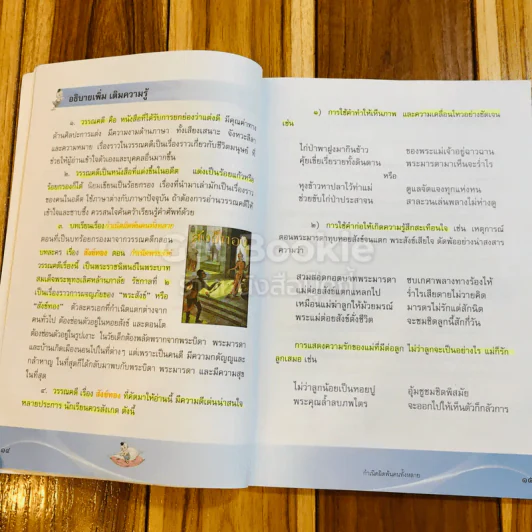 อธิบายเพิ่ม เติมความรู้
๑. วรรณคดี คือ หนังสือที่ได้รับการยกย่องว่าแต่งดี มีคุณค่าทาง
ด้านศิลปะการแต่ง มีความงามด้านภาษา ทั้งเสียงเสนาะ จังหวะลีลา
และความหมาย เรื่องราวในวรรณคดีเป็นเรื่องราวเกี่ยวกับชีวิตมนุษย์
ช่วยให้ผู้อ่านเข้าใจตัวเองและบุคคลอื่นมากขึ้น
๒. วรรณคดีเป็นหนังสือที่แต่งขึ้นในอดีต แต่งเป็นร้อยแก้วหรือ
ร้อยกรองก็ได้ นิยมเขียนเป็นร้อยกรอง เรื่องที่นำมาเล่ามักเป็นเรื่องราว
ของคนในอดีต ใช้ภาษาต่างกับปัจจุบัน ถ้าต้องการอ่านวรรณคดีให้
เข้าใจและซาบซึ้ง ควรสนใจค้นคว้าเรียนรู้คำศัพท์ด้วย
๓. บทเรียนเรื่อง กำเนิดผิดพ้นคนทั้งหลาย
ตอนที่เป็นบทร้อยกรองมาจากวรรณคดีกลอน
บทละคร เรื่อง สังข์ทอง ตอน กำเนิดพระสังข์
วรรณคดีเรื่องนี้ เป็นพระราชนิพนธ์ในพระบาท
สมเด็จพระพุทธเลิศหล้านภาลัย รัชกาลที่ ๒
เป็นเรื่องราวการผจญภัยของ "พระสังข์" หรือ
"สังข์ทอง" ตัวละครเอกที่กำเนิดแตกต่างจาก
คนทั่วไป ต้องซ่อนตัวอยู่ในหอยสังข์ และตอนโต
ต้องซ่อนตัวอยู่ในรูปเงาะ ในวัยเด็กต้องพลัดพรากจากพระบิดา พระมารดา
และบ้านเกิดเมืองนอนไปในที่ต่างๆ แต่เพราะเป็นคนดี มีความกตัญญูและ
กล้าหาญ ในที่สุดก็ได้กลับมาพบกับพระบิดา พระมารดา และมีความสุข
ในที่สุด
๔. วรรณคดี เรื่อง สังข์ทอง ที่คัดมาให้อ่านนี้ มีความดีเด่นน่าสนใจ
หลายประการ นักเรียนควรสังเกต ดังนี้
๑๔
๑) การใช้คำทำให้เห็นภาพ และความเคลื่อนไหวอย่างชัดเจน
เช่น
ไก่ป่าพาฝูงมากินข้าว ของพระแม่เจ้าอยู่ฉาวฉาน
คุ้ยเขี่ยเรี่ยรายทั้งดินดาน พระมารดามาเห็นจะร่ำไร
หรือ
หุงข้าวหาปลาไว้ท่าแม่ ดูแลจัดแจงทุกแห่งหน
ช่วยขับไก่ป่าประสาจน สาละวนเล่นพลางไม่ห่างดู
๒) การใช้คำก่อให้เกิดความรู้สึกสะเทือนใจ เช่น เหตุการณ์
ตอนพระมารดาทุบหอยสังข์จนแตก พระสังข์เสียใจ ตัดพ้ออย่างน่าสงสาร
ความว่า
สวมสอดกอดบาทพระมารดา ซบเกศาพลางทางร้องไห้
ร่ำไรเสียดายไม่วายคิด
เหมือนแม่ฆ่าลูกให้ม้วยมรณ์ มารดรไม่รักแต่สักนิด
พระแม่ต่อยสังข์ดังชีวิต จะชมชิดลูกนี้สักกี่วัน
การแสดงความรักของแม่ที่มีต่อลูก ไม่ว่าลูกจะเป็นอย่างไร แม่ก็รัก
ลูกเสมอ เช่น
ไม่ว่าลูกน้อยเป็นหอยปู อุ้มชูชมชิดพิสมัย
พระคุณล้ำลบภพไตร จะออกไปให้เห็นตัวก็กลัวการ
กำเนิดผิดพ้นคนทั้งหลาย
๑๕